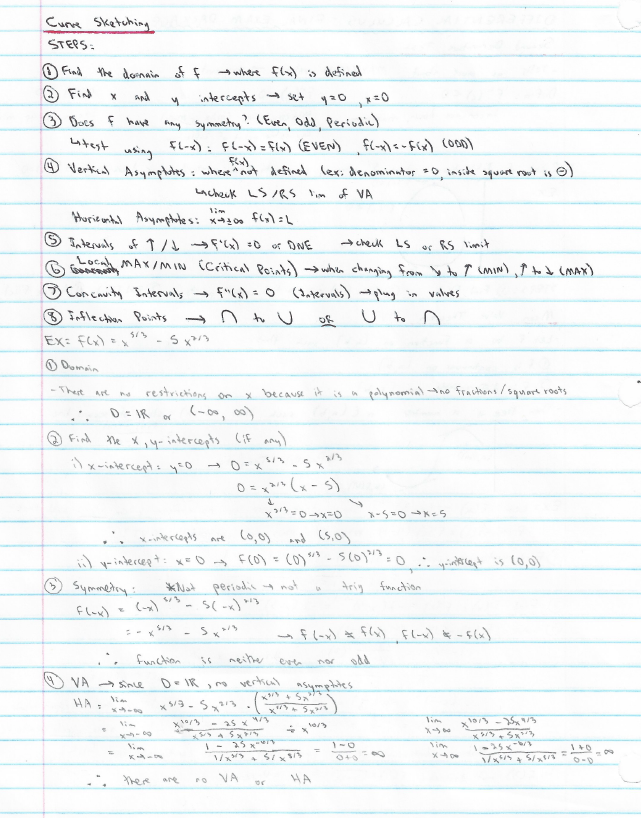 Curve Sketching
STEPS:
① Find the domain of f → where f(x) is defined
② Find x and y intercepts → set y=0, x=0
③ Does f have any symmetry? (Even, Odd, Periodic)
↳ test using f(-x): f(-x)=f(x) (EVEN) f(-x)=-f(x) (ODD)
④ Vertical Asymptotes: where f(x) not defined (ex: denominator =0, inside square root is ⊖)
↳ check LS/RS lim of VA
Horizontal Asymptotes: lim x→±∞ f(x)=L
⑤ Intervals of ↑/↓ → f'(x)=0 or DNE → check LS or RS limit
⑥ Local MAX/MIN (Critical Points) → when changing from ↘ to ↑ (MIN), ↑ to ↓ (MAX)
⑦ Concavity Intervals → f"(x)=0 (Intervals) → plug in values
⑧ Inflection Points → ∩ to ∪ OR ∪ to ∩
EX: f(x) = x^5/3 - 5x^2/3
① Domain
- There are no restrictions on x because it is a polynomial → no fractions/square roots
∴ D=ℝ or (-∞, ∞)
② Find the x, y-intercepts (if any)
i) x-intercept: y=0 → 0=x^5/3 - 5x^2/3
0=x^2/3 (x-5)
x^2/3=0→x=0 x-5=0→x=5
∴ x-intercepts are (0,0) and (5,0)
ii) y-intercept: x=0 → f(0)=(0)^5/3 - 5(0)^2/3=0, ∴ y-intercept is (0,0)
③ Symmetry: *Not periodic → not a trig function
f(-x) = (-x)^5/3 - 5(-x)^2/3
= -x^5/3 - 5x^2/3 → f(-x) ≠ f(x), f(-x) ≠ -f(x)
∴ function is neither even nor odd
④ VA → since D=ℝ, no vertical asymptotes
HA = lim x→-∞ x^5/3 - 5x^2/3 · (x^5/3 + 5x^2/3 / x^5/3 + 5x^2/3)
= lim x→-∞ x^10/3 - 25x^4/3 / x^5/3 + 5x^2/3 ÷ x^10/3 lim x→∞ x^10/3 - 25x^4/3 / x^5/3 + 5x^2/3
= lim x→-∞ 1 - 25x^-6/3 / 1/x^5/3 + 5/x^8/3 = 1-0 / 0+0 = ∞ lim x→∞ 1-25x^-6/3 / 1/x^5/3 + 5/x^8/3 = 1+0 / 0-0 = ∞
∴ there are no VA or HA